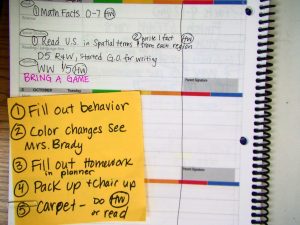 ① Math Facts 0-7 HW
① Read U.S. in Spatial terms ② write 1 fact HW
from each region
D5 R+W, started G.O. for writing
WW 1/5 HW
BRING A GAME
Parent Signature
OCTOBER Tuesday
① Fill out behavior
② Color changes see
Mrs. Brady
③ Fill out Homework
in planner
④ Pack up + chair up
⑤ Carpet - Do HW
or read
Parent Signature